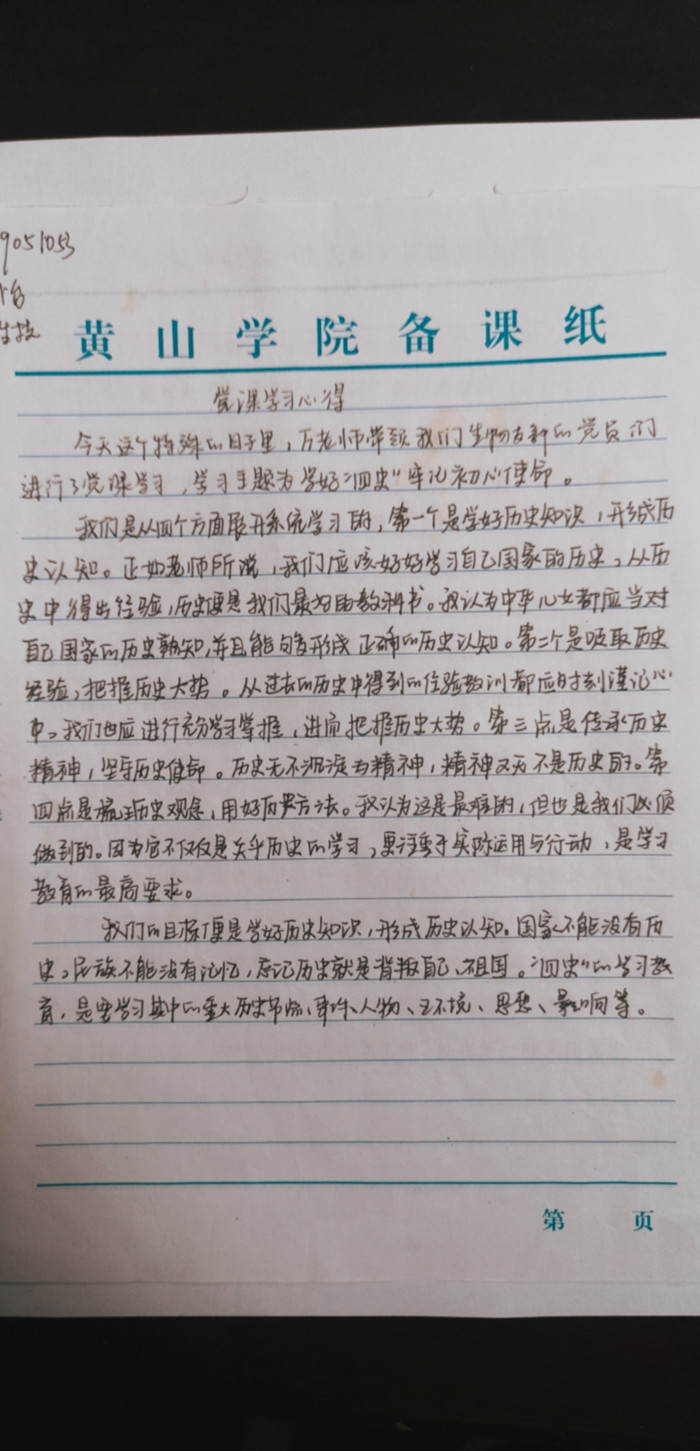 9051053
生技
黄山学院备课纸
党课学习心得
今天这个特殊的日子里，万老师带领我们生物专业的党员们
进行了党课学习，学习主题为学好“四史”牢记初心使命。
我们是从四个方面展开系统学习的，第一个是学好历史知识，形成历
史认知。正如老师所说，我们应该好好学习自己国家的历史，从历
史中得出经验，历史便是我们最好的教科书。我认为中华儿女都应当对
自己国家的历史熟知，并且能够形成正确的历史认知。第二个是吸取历史
经验，把握历史大势。从过去的历史中得到的经验教训都应时刻谨记心
中，我们也应进行充分学习掌握，进而把握历史大势。第三点是传承历史
精神，坚守历史使命。历史无不沉淀为精神，精神又无不是历史的。第
四点是端正历史观念，用好历史方法。我认为这是最难的，但也是我们必须
做到的。因为它不仅仅是关乎历史的学习，更注重于实际运用与行动，是学习
教育的最高要求。
我们的目标便是学好历史知识，形成历史认知。国家不能没有历
史，民族不能没有记忆，忘记历史就是背叛自己、祖国。“四史”的学习教
育，是要学习其中的重大历史节点、事件、人物、环境、思想、影响等。
第 页